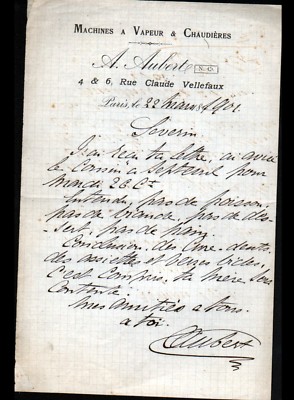 MACHINES A VAPEUR & CHAUDIÈRES
A. Aubert S.G.
4 & 6, Rue Claude Vellefaux
Paris, le 22 mars 1901
Severin
J'ai reçu ta lettre, ai avisé
le Cousin à Septeuil pour
mardi 26 Ct
Entendu, pas de poisson,
pas de viande, pas de des-
sert, pas de pain,
Conclusion, des Cure-dents,
des assiettes et verres vides,
c'est compris, ta mère sera
Contente.
Mes amitiés a tous
a toi
Aubert